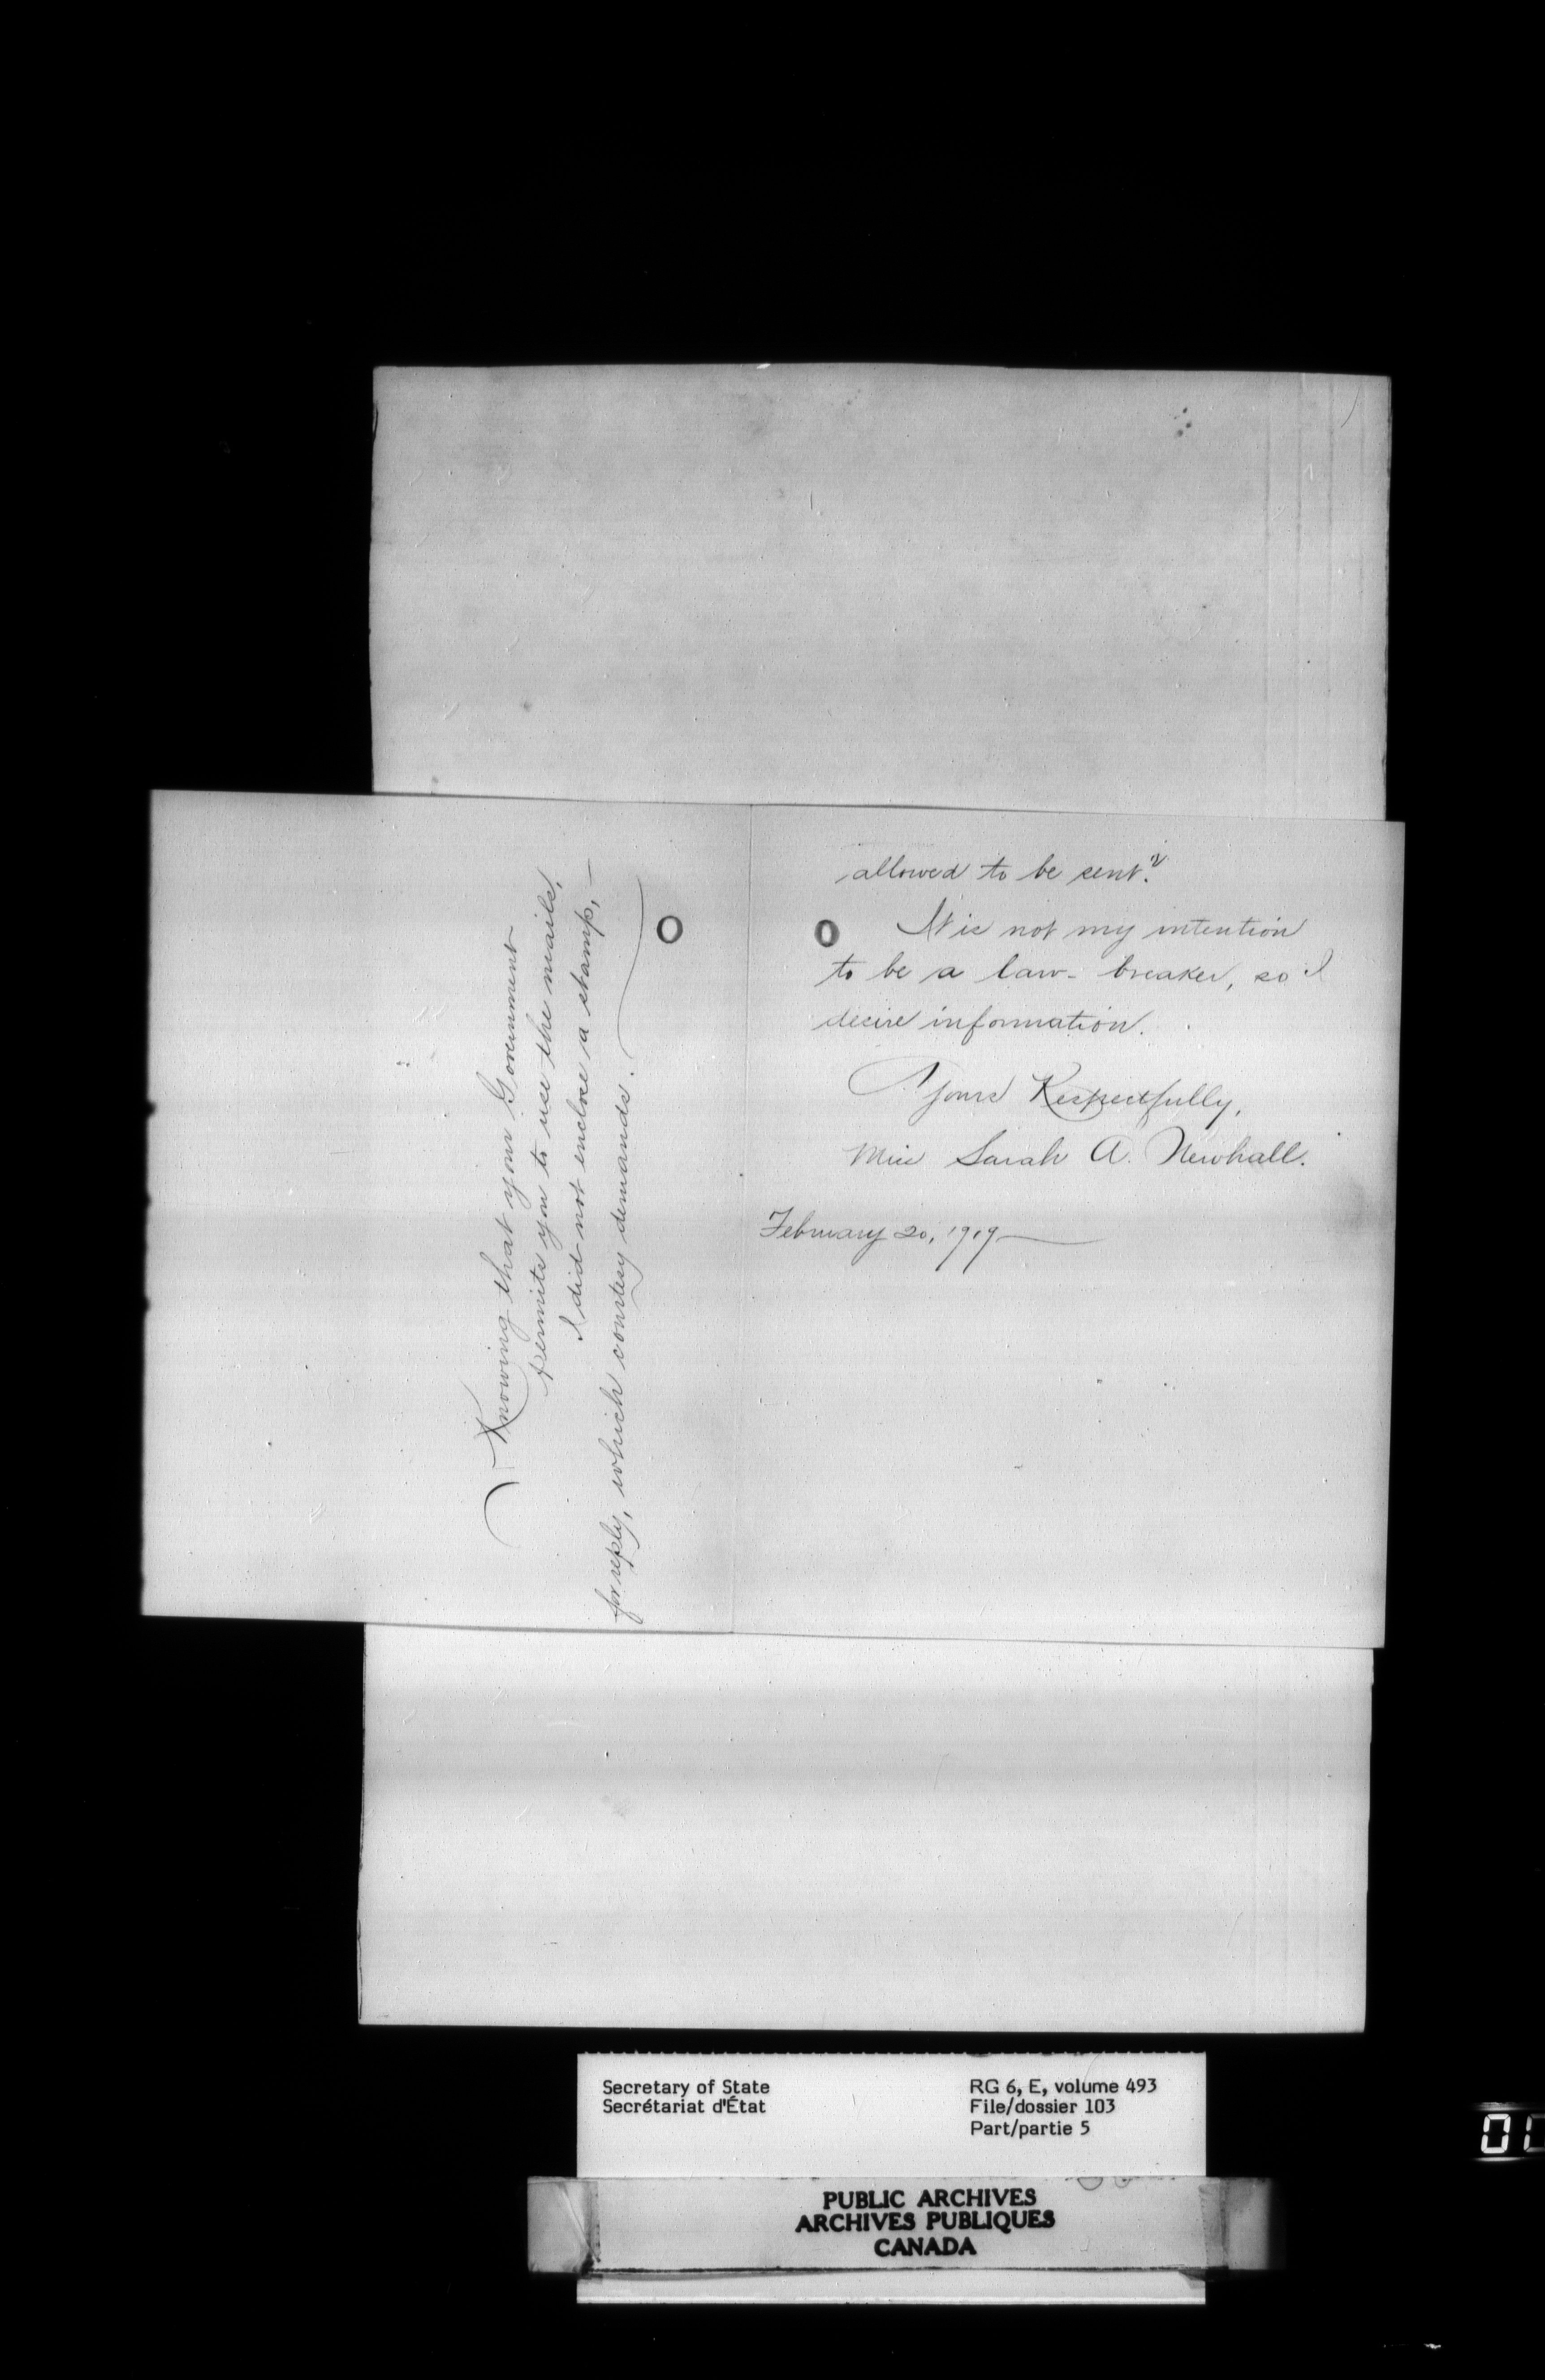 allowed to be sent?
It is not my intention
to be a law-breaker, so I
desire information.
Yours Respectfully,
Miss Sarah A. Newhall.
February 20, 1919
Knowing that your Government
permits you to use the mails,
I did not enclose a stamp,—
for reply, which courtesy demands.
Secretary of State
Secrétariat d'État
RG 6, E, volume 493
File/dossier 103
Part/partie 5
PUBLIC ARCHIVES
ARCHIVES PUBLIQUES
CANADA